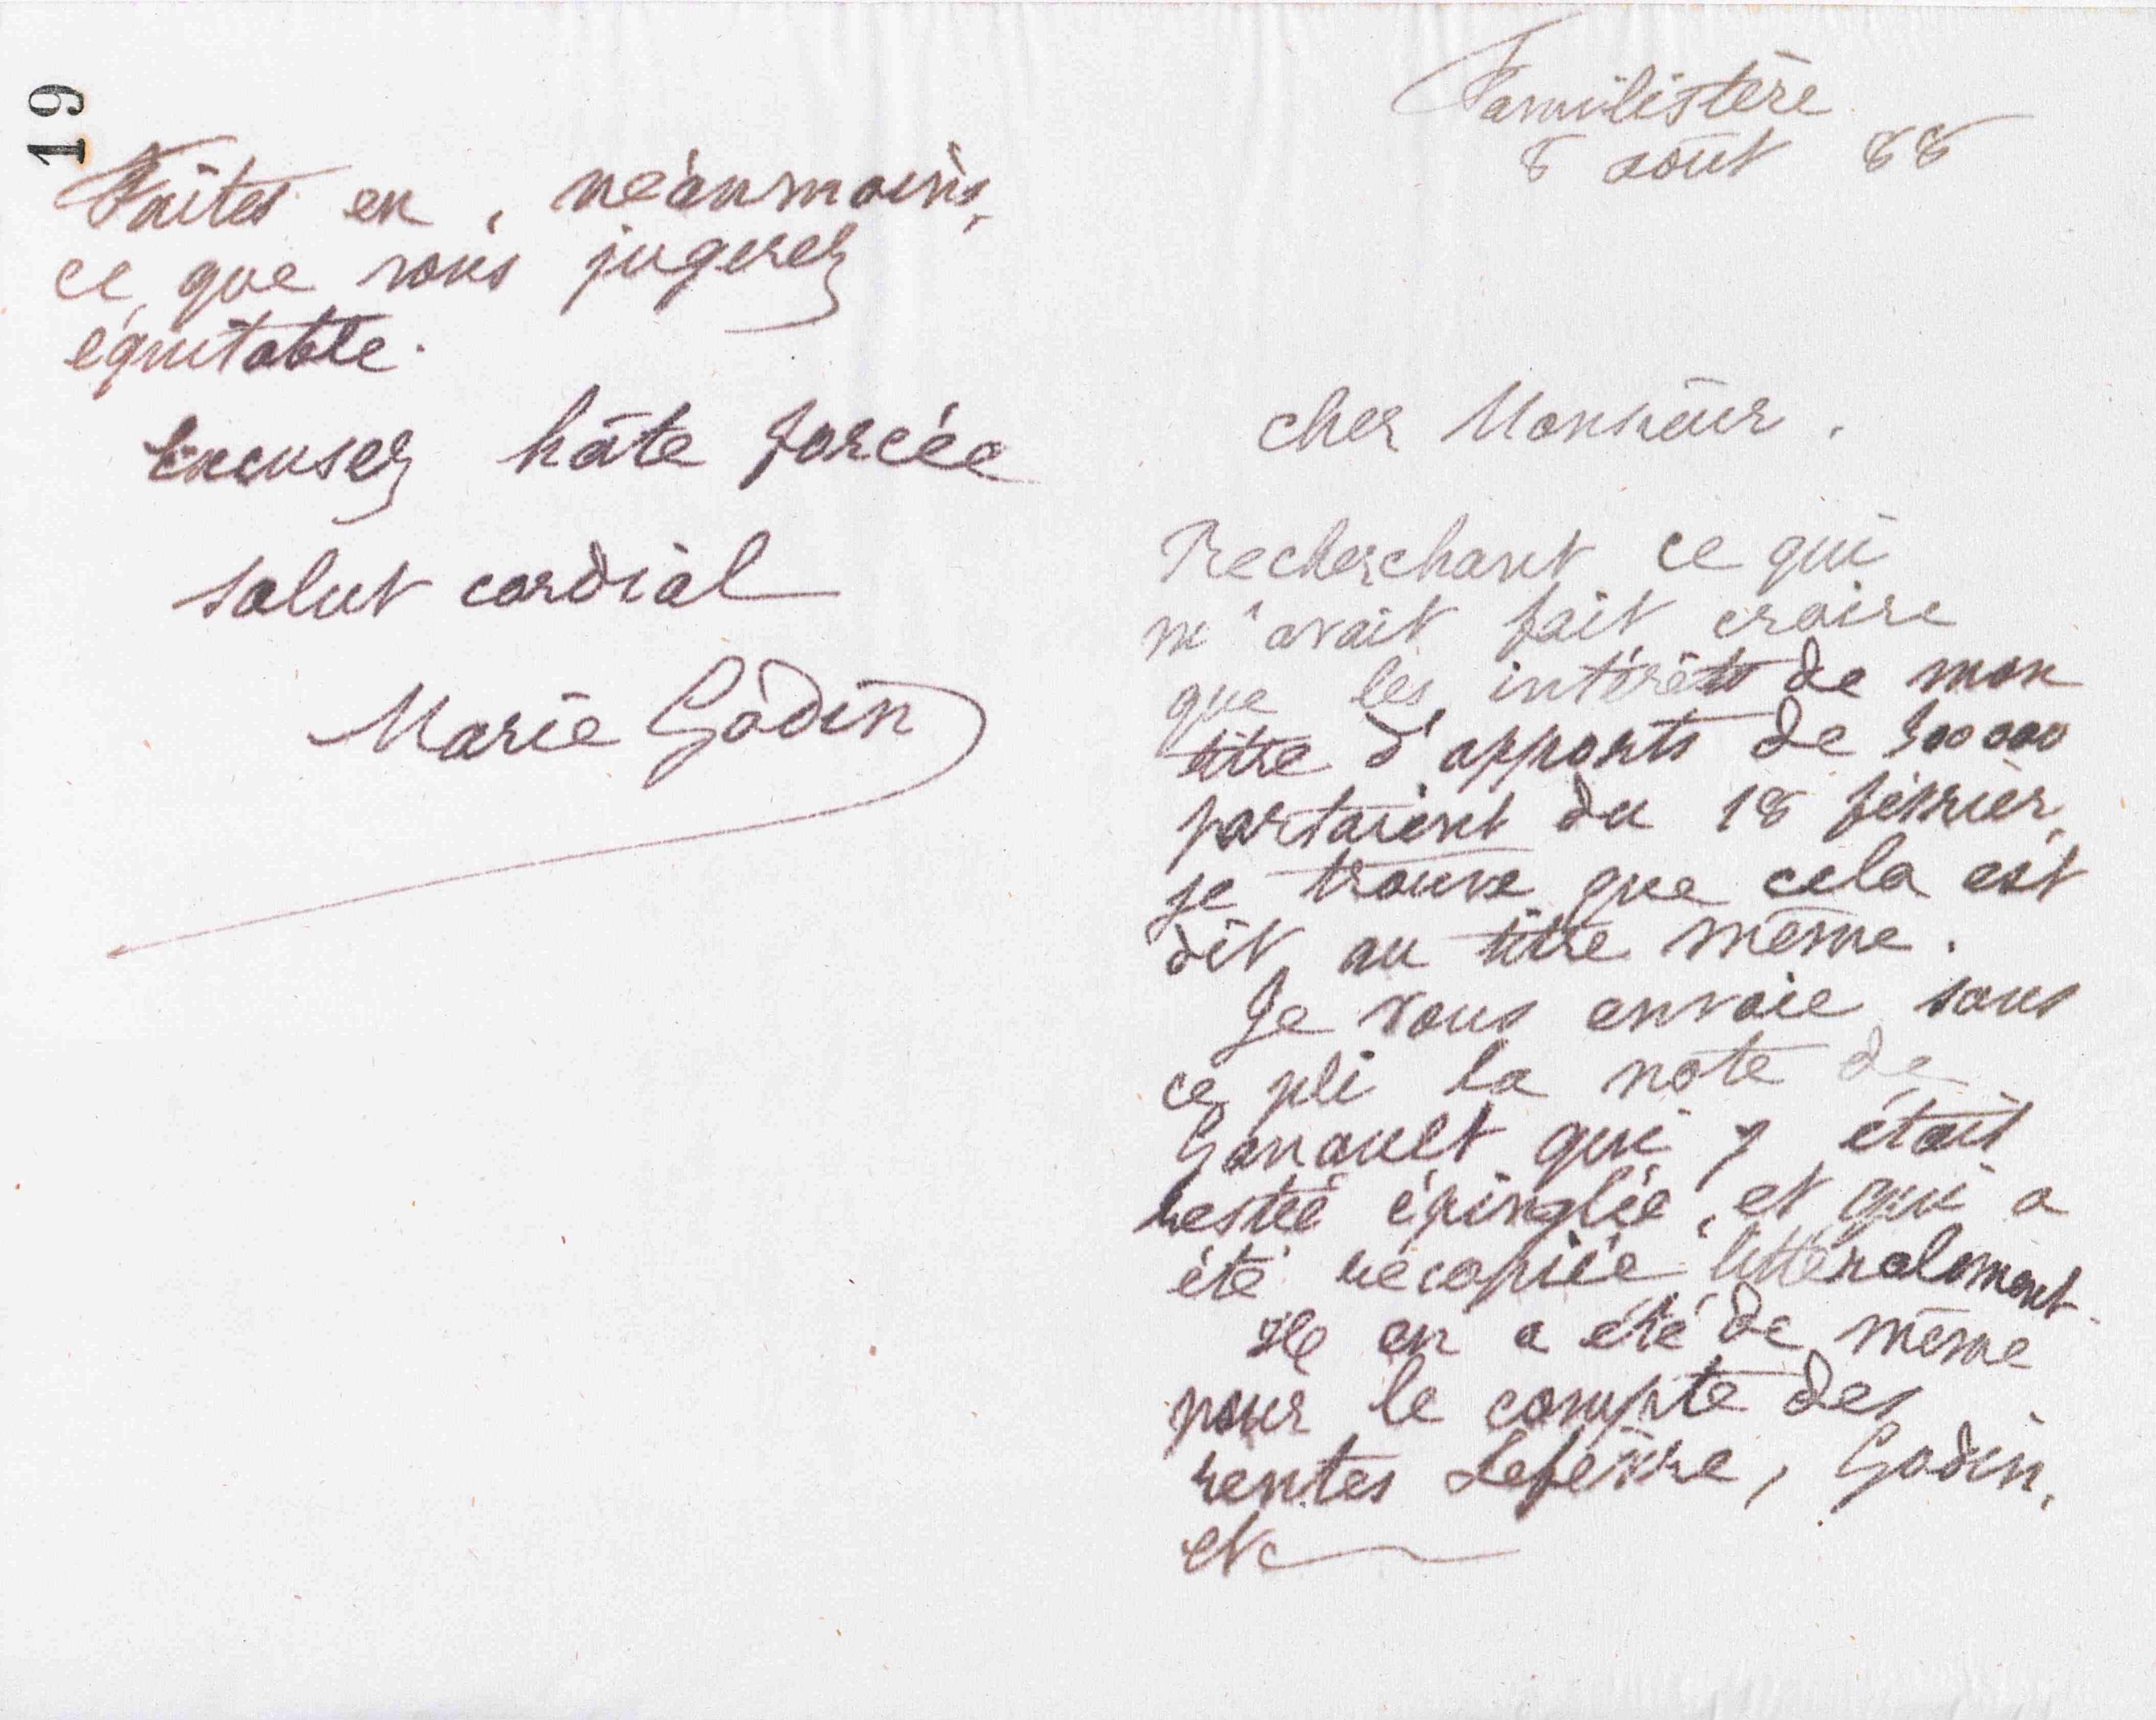 19
Familistère
8 août 88
cher Monsieur.
Recherchant ce qui
m'avait fait croire
que les intérêts de mon
titre d'apports de 300 000
partaient du 18 février,
je trouve que cela est
dit au titre même.
Je vous envoie sous
ce pli la note de
Ganault qui y était
restée épinglée, et qui a
été recopiée littéralement.
Il en a été de même
pour le compte des
rentes Lefèvre, Godin,
etc
Faites en, néanmoins,
ce que vous jugerez
équitable.
Excusez hâte forcée
salut cordial
Marie Godin